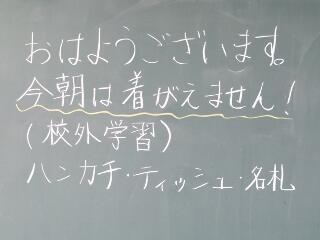 おはようございます。
今朝は着がえません!
(校外学習)
ハンカチ・ティッシュ・名札